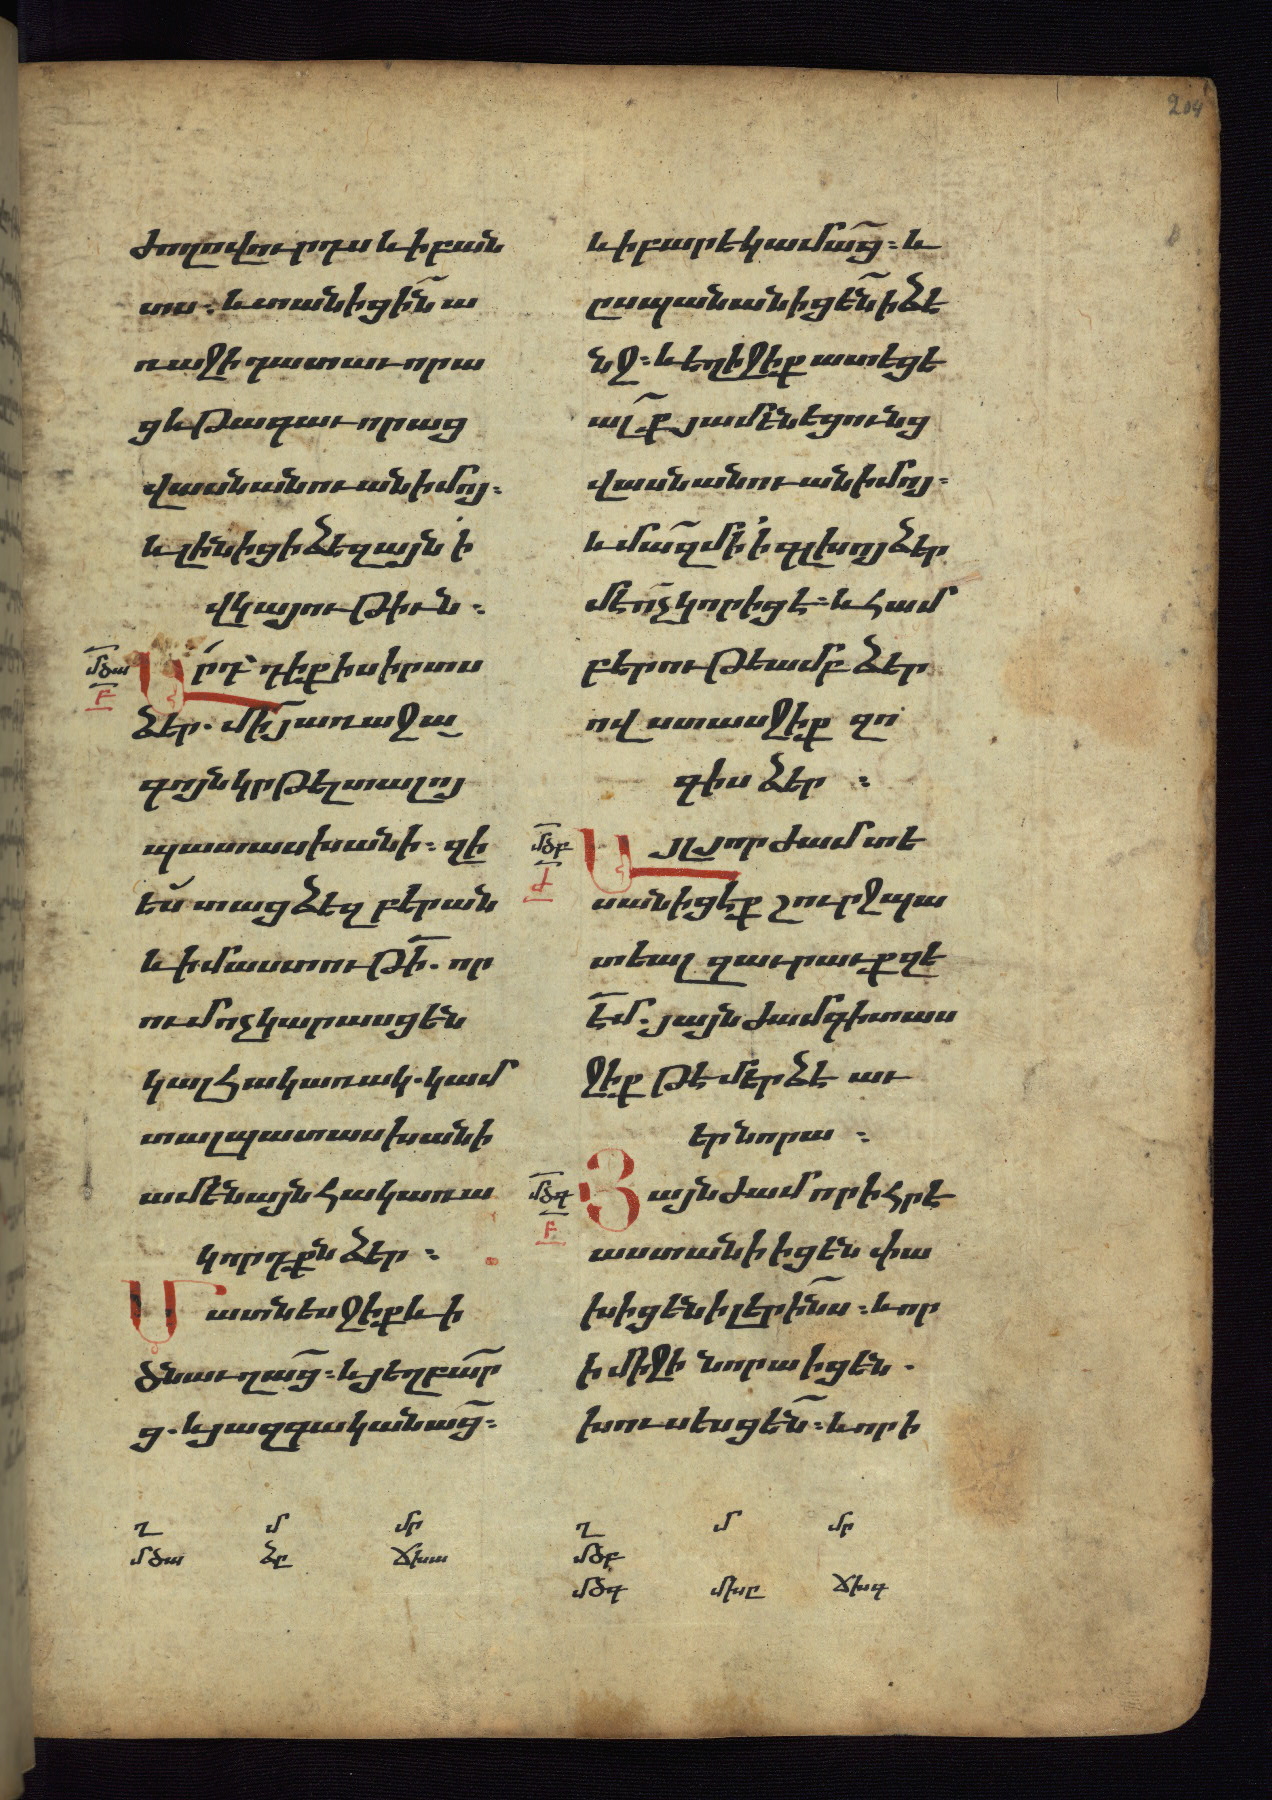 204
ժողովուրդս և ի բան
տս։ և տանիցի̅ն ա
ռաջի դատաւորա
ց և թագաւորաց
վասն անուան իմոյ։
և լինիցի ձեզ այն ի
վկայութիւն։
մծա
բ
Արդ դիք ի սիրտս
ձեր. մի՛ յառաջա
գոյն կրթել տալոյ
պատասխանի։ զի
ես տաց ձեզ բերան
և իմաստութի̅. որ
ում ոչ կարասցեն
կալ հակառակ. կամ
տալ պատասխանի
ամենայն հակառա
կորդքն ձեր։
Մատնեսջիք և ի
ծնաւղա̅ց։ և յեղբա̅ր
ց. և յազգականա̅ց։
և ի բարեկամա̅ց։ և
ըսպանանիցե̅ն ի ձե
նջ։ և եղիջիք ատեցե
ա̅լք յամենեցունց
վասն անուան իմոյ։
և մա̅զ մի ի գլխոյ ձեր
մեռ̅ չկորիցէ։ և համ
բերութեամբ ձեր
ով ստասջիք զո
գիս ձեր։
մծբ
ժ
Այլ յորժամ տե
սանիցեք շուրջ պա
տեալ զաւրաւք զե
ե̅մ. յայնժամ գիտաս
ջիք թե մերձե աւ
եր նորա։
մծգ
բ
Յայնժամ որ ի հրե
աստանի իցեն փա
խիցեն ի լերի̅նս։ և որ
ի միջի նորա իցեն.
խուսեսցե̅ն։ և որ ի
ղ մ մր
մծա ձը ճխա
ղ մ մր
մծբ
մծգ մխը ճխգ